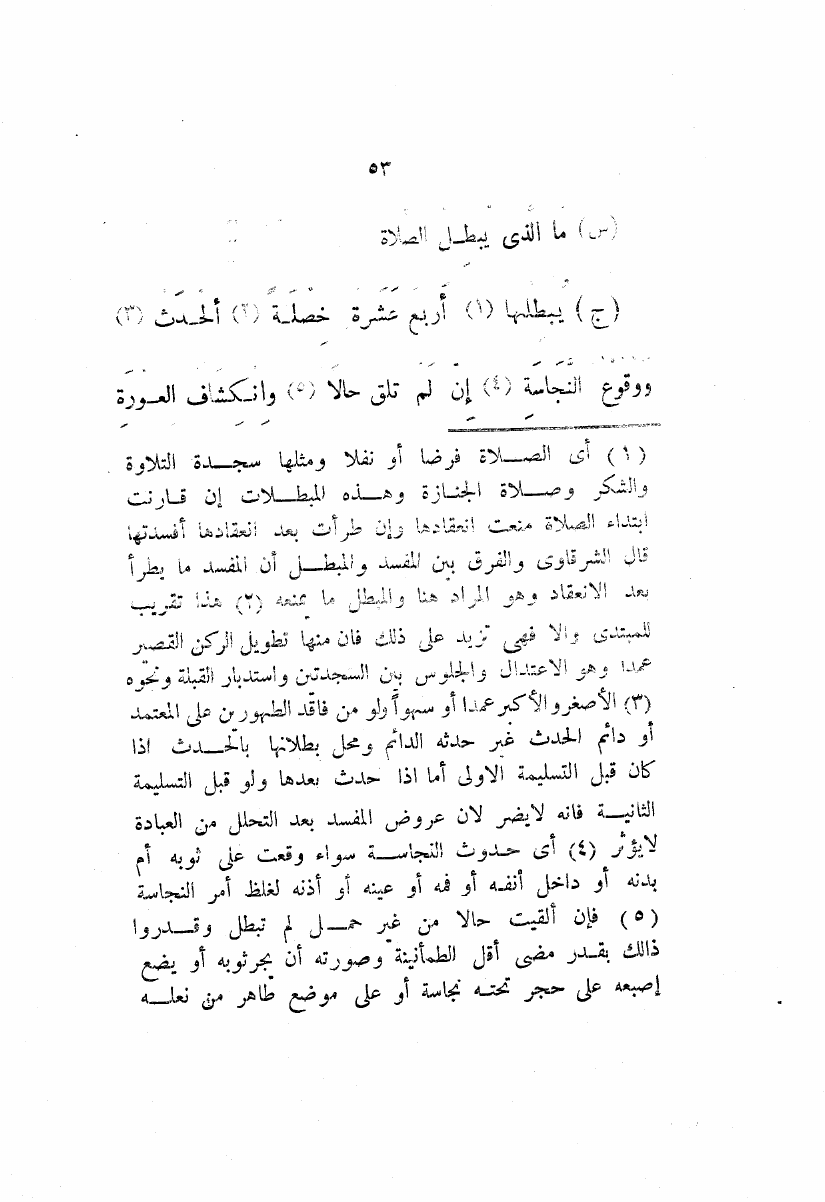 ٥٣
(س) ما الذى يبطل الصلاة
(ج) يبطلها (١) أربع عشرة خصلة (٢) ألحدث (٣)
ووقوع النجاسة (٤) إن لم تلق حالا (٥) وانكشاف العورة
(١) أى الصلاة فرضا أو نفلا ومثلها سجدة التلاوة
والشكر وصلاة الجنازة وهذه المبطلات إن قارنت
ابتداء الصلاة منعت انعقادها وإن طرأت بعد انعقادها أفسدتها
قال الشرقاوى والفرق بين المفسد والمبطل أن المفسد ما يطرأ
بعد الانعقاد وهو المراد هنا والمبطل ما يمنعه (٢) هذا تقريب
للمبتدى والا فهى تزيد على ذلك فان منها تطويل الركن القصير
عمدا وهو الاعتدال والجلوس بين السجدتين واستدبار القبلة ونحوه
(٣) الأصغر والأكبر عمدا أو سهوا ولو من فاقد الطهورين على المعتمد
أو دائم الحدث غير حدثه الدائم ومحل بطلانها بالحدث اذا
كان قبل التسليمة الاولى أما اذا حدث بعدها ولو قبل التسليمة
الثانية فانه لايضر لان عروض المفسد بعد التحلل من العبادة
لايؤثر (٤) أى حدوث النجاسة سواء وقعت على ثوبه أم
بدنه أو داخل أنفه أو فمه أو عينه أو أذنه لغلظ أمر النجاسة
(٥) فإن ألقيت حالا من غير حمل لم تبطل وقدروا
ذالك بقدر مضى أقل الطمأنينة وصورته أن يجر ثوبه أو يضع
إصبعه على حجر تحته نجاسة أو على موضع طاهر من نعله